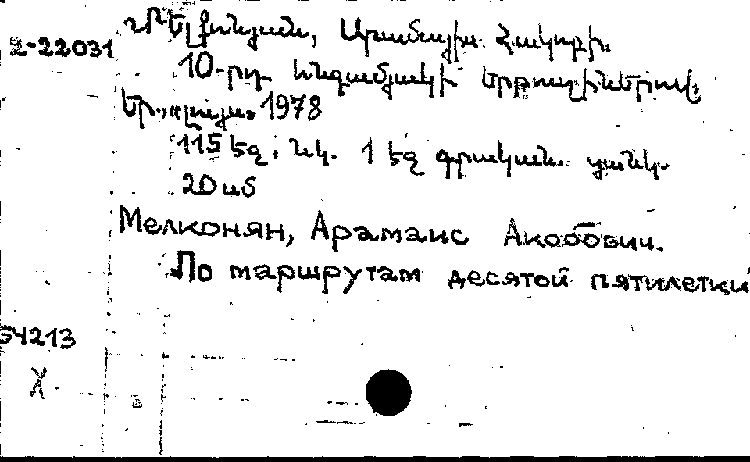 Մելքոնյան, Արամայիս Հակոբի.
2-22031
10-րդ հնգամյակի երթուղիներով.
Եր., 1978
115 էջ, նկ. 1 էջ գրական. ցանկ.
20 սմ
Мелконян, Арамаис Акобович.
По маршрутам десятой пятилетки
54213
X